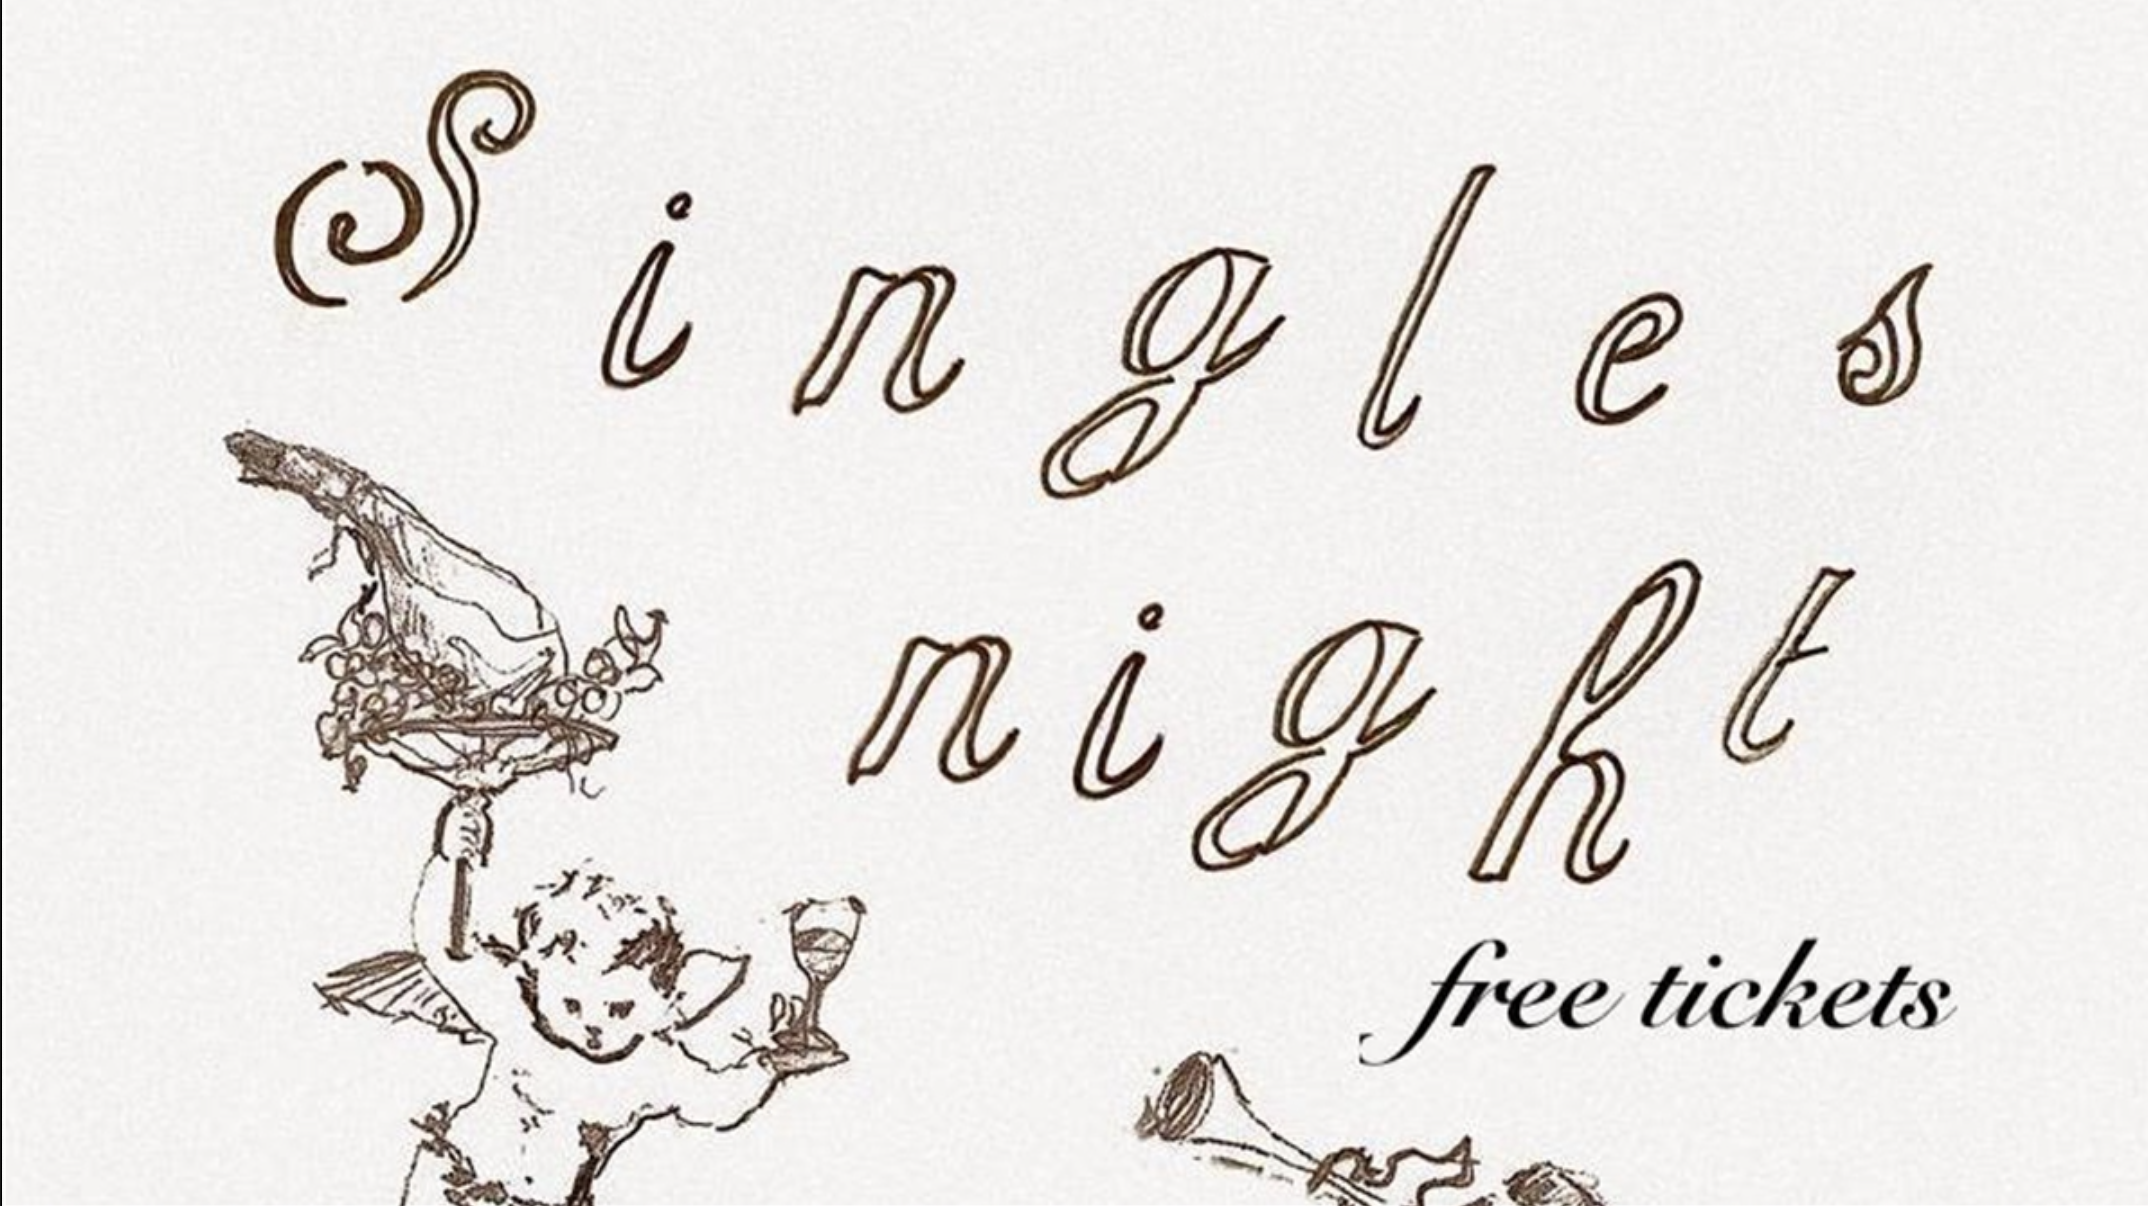 Singles
night
free tickets